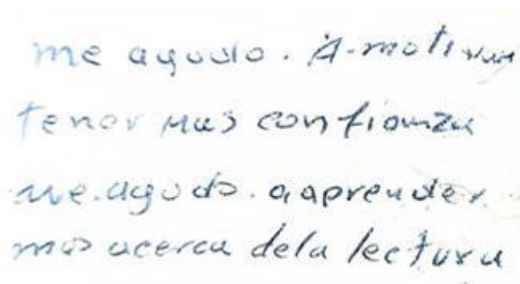 me ayudo. A-motivar
tener mas confianza
me.ayudo.a aprender
mas acerca dela lectura